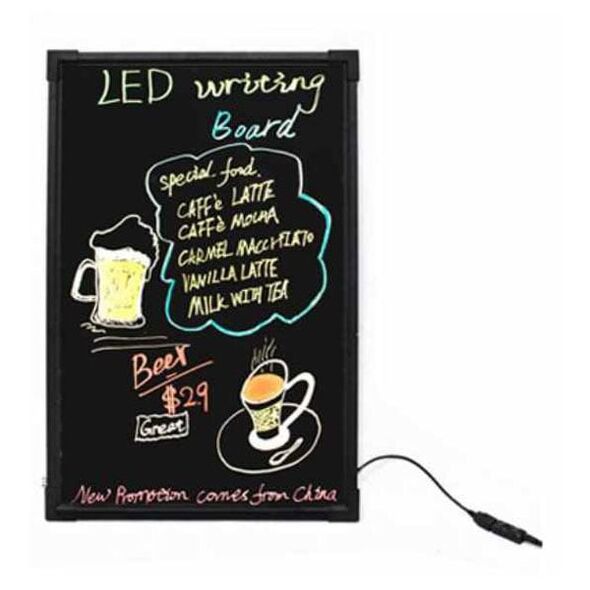 LED writing
Board
special food.
CAFF'e LATTE
CAFFè MOCHA
CARMEL MACCHIATO
VANILLA LATTE
MILK WITH TEA
Beer
$29
Great
New Promotion comes from China